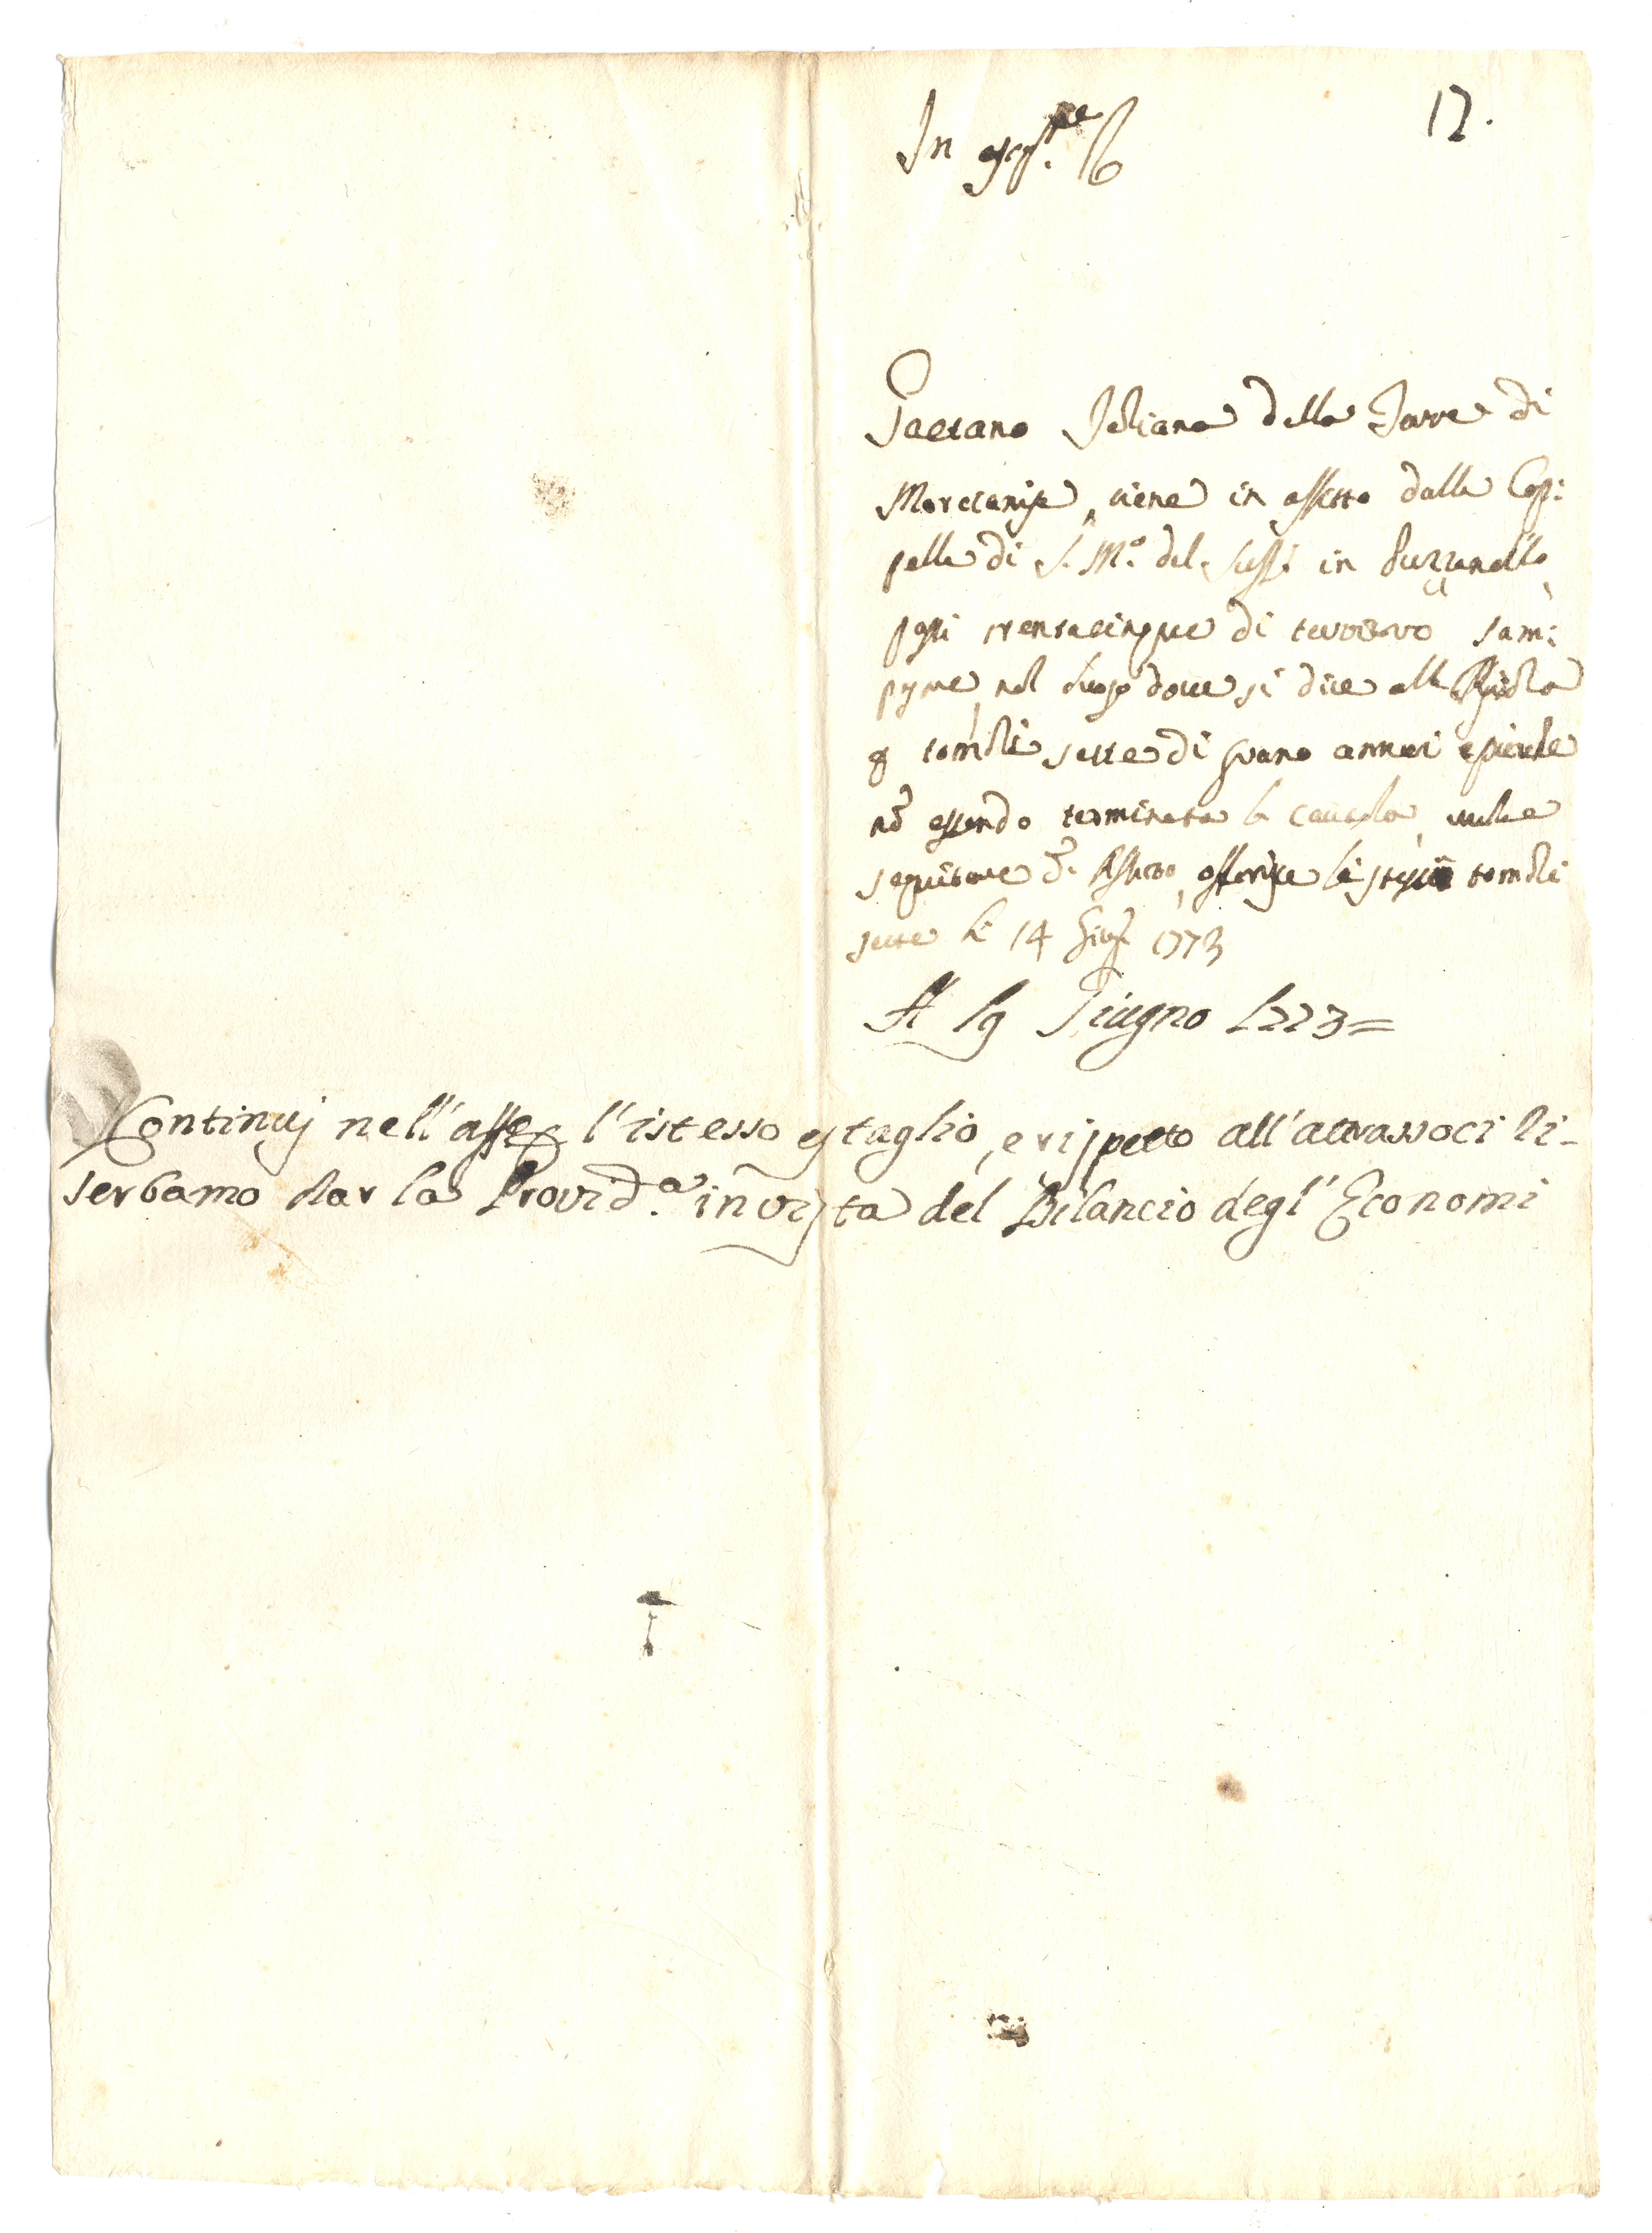 12.
In
Gaetano Iuliano della Torre di
Marcianise, tiene in affitto dalla Cap:
pella di S. M.ª del Suff: in
passi trentacinque di territorio Cam:
pese, nel luogo dove si dice alla
tomoli sette di grano annui, e perche
nõ essendo terminata la cautela, vuole
seguitare d. Affitto, offerisce li stessi tomoli
sette li 14 Giug. 1773
A 19 Giugno 1773 =
Continuj nell'aff. l'istesso estaglio, e rispetto all'attrassoci ri-
serbamo dar la Provid.ª in vista del Bilancio degl'Economi